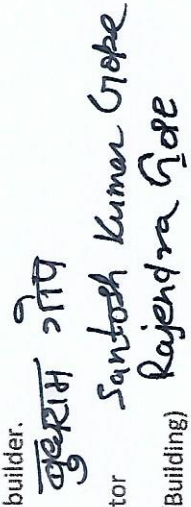 builder.
बुधराम गोप
tor Santosh Kumar Gope
Rajendra Gope
Building)